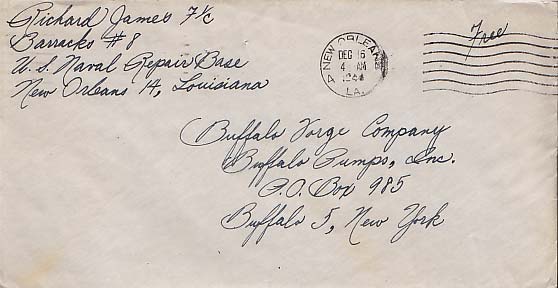 Richard James F 1/c
Barracks #8
U. S. Naval Repair Base
New Orleans 14, Louisiana
NEW ORLEANS
DEC 16
4 AM
1944
LA.
Free
Buffalo Forge Company
Buffalo Pumps, Inc.
P.O. Box 985
Buffalo 5, New York